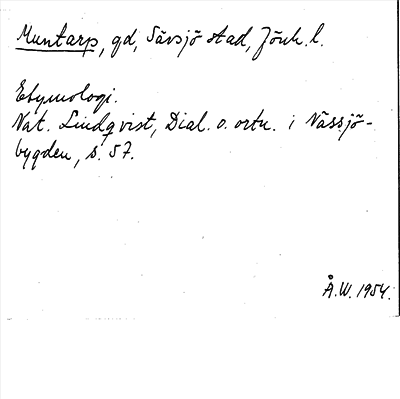 Muntarp, gd, Sävsjö stad, Jönk. l.
Etymologi.
Nat. Lindqvist, Dial. o. ortn. i Nässjö-
bygden, s. 57.
Å.W. 1954.